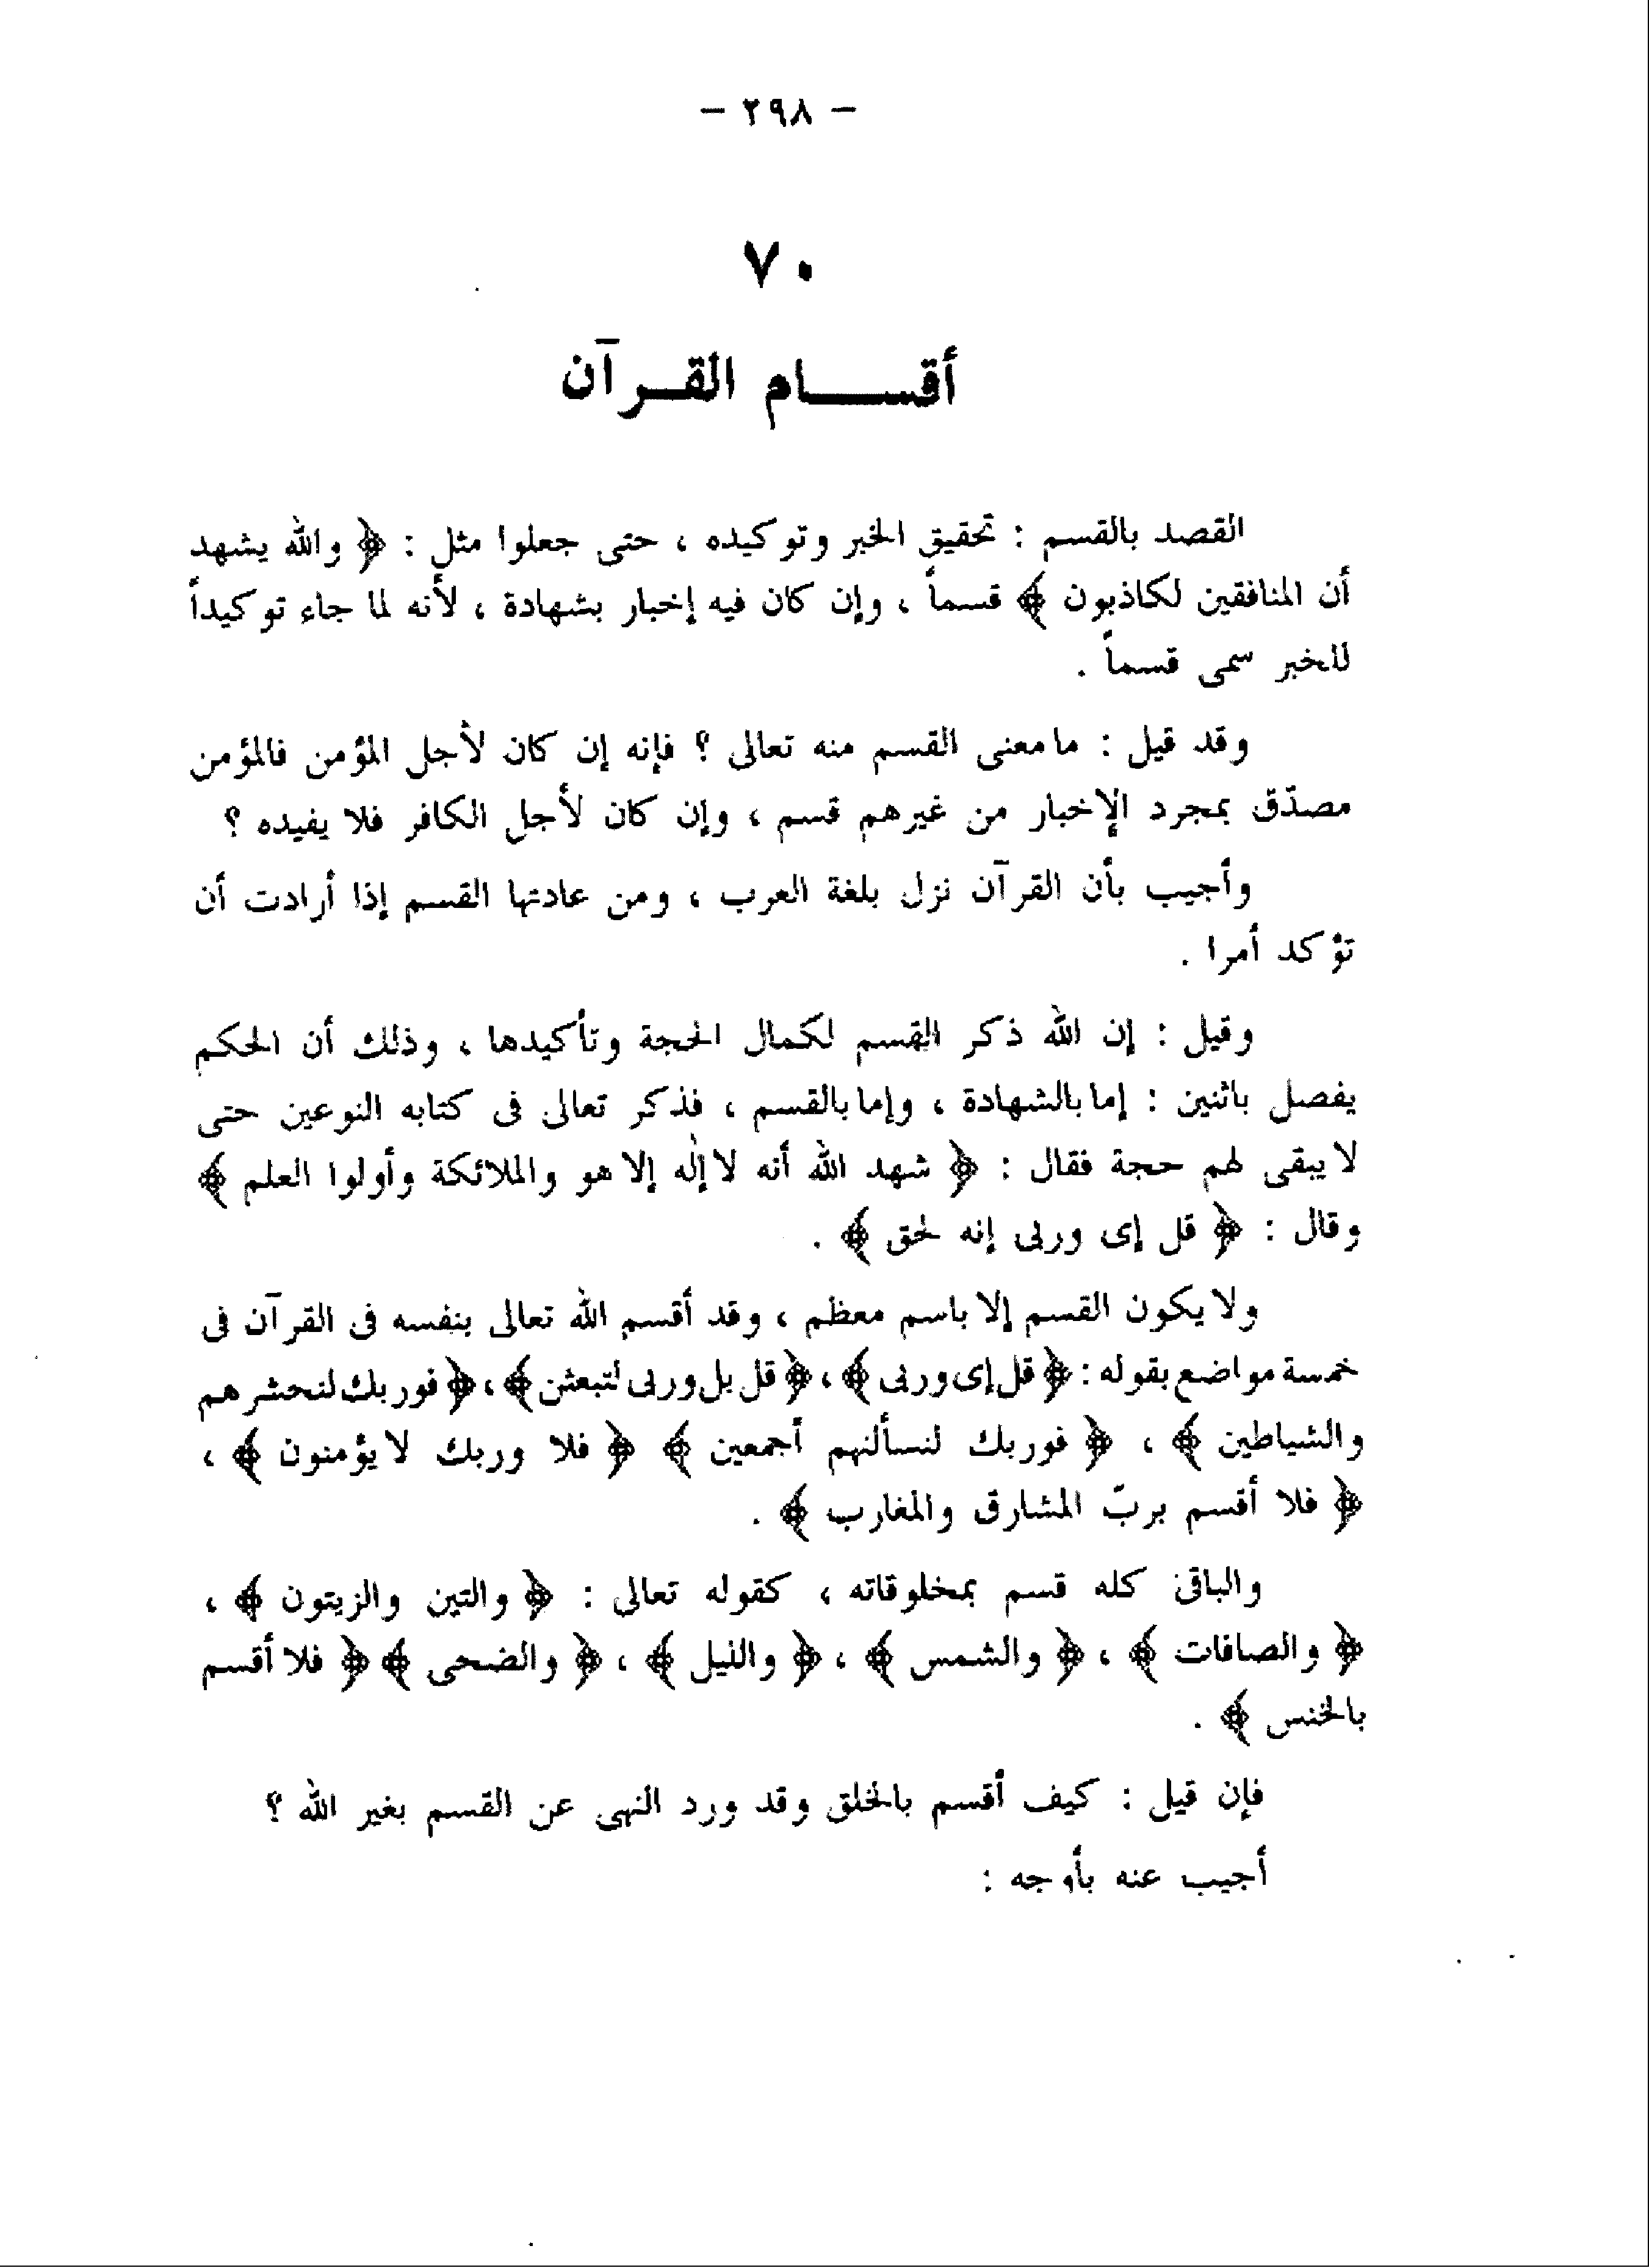 — ٢٩٨ —
٧٠
أقسام القرآن
القصد بالقسم : تحقيق الخبر وتوكيده ، حتى جعلوا مثل : ﴿ والله يشهد
أن المنافقين لكاذبون ﴾ قسماً ، وإن كان فيه إخبار بشهادة ، لأنه لما جاء توكيداً
للخبر سمى قسماً .
وقد قيل : ما معنى القسم منه تعالى ؟ فإنه إن كان لأجل المؤمن فالمؤمن
مصدّق بمجرد الإخبار من غيرهم قسم ، وإن كان لأجل الكافر فلا يفيده ؟
وأجيب بأن القرآن نزل بلغة العرب ، ومن عادتها القسم إذا أرادت أن
تؤكد أمرا .
وقيل : إن الله ذكر القسم لكمال الحجة وتأكيدها ، وذلك أن الحكم
يفصل باثنين : إما بالشهادة ، وإما بالقسم ، فذكر تعالى فى كتابه النوعين حتى
لا يبقى لهم حجة فقال : ﴿ شهد الله أنه لا إله إلا هو والملائكة وأولوا العلم ﴾
وقال : ﴿ قل إى وربى إنه لحق ﴾ .
ولا يكون القسم إلا باسم معظم ، وقد أقسم الله تعالى بنفسه فى القرآن فى
خمسة مواضع بقوله : ﴿ قل إى وربى ﴾ ، ﴿ قل بل وربى لتبعثن ﴾ ، ﴿ فوربك لنحشرهم
والشياطين ﴾ ، ﴿ فوربك لنسألنهم أجمعين ﴾ ﴿ فلا وربك لا يؤمنون ﴾ ،
﴿ فلا أقسم بربّ المشارق والمغارب ﴾ .
والباقى كله قسم بمخلوقاته ، كقوله تعالى : ﴿ والتين والزيتون ﴾ ،
﴿ والصافات ﴾ ، ﴿ والشمس ﴾ ، ﴿ والليل ﴾ ، ﴿ والضحى ﴾ ﴿ فلا أقسم
بالخنس ﴾ .
فإن قيل : كيف أقسم بالخلق وقد ورد النهى عن القسم بغير الله ؟
أجيب عنه بأوجه :